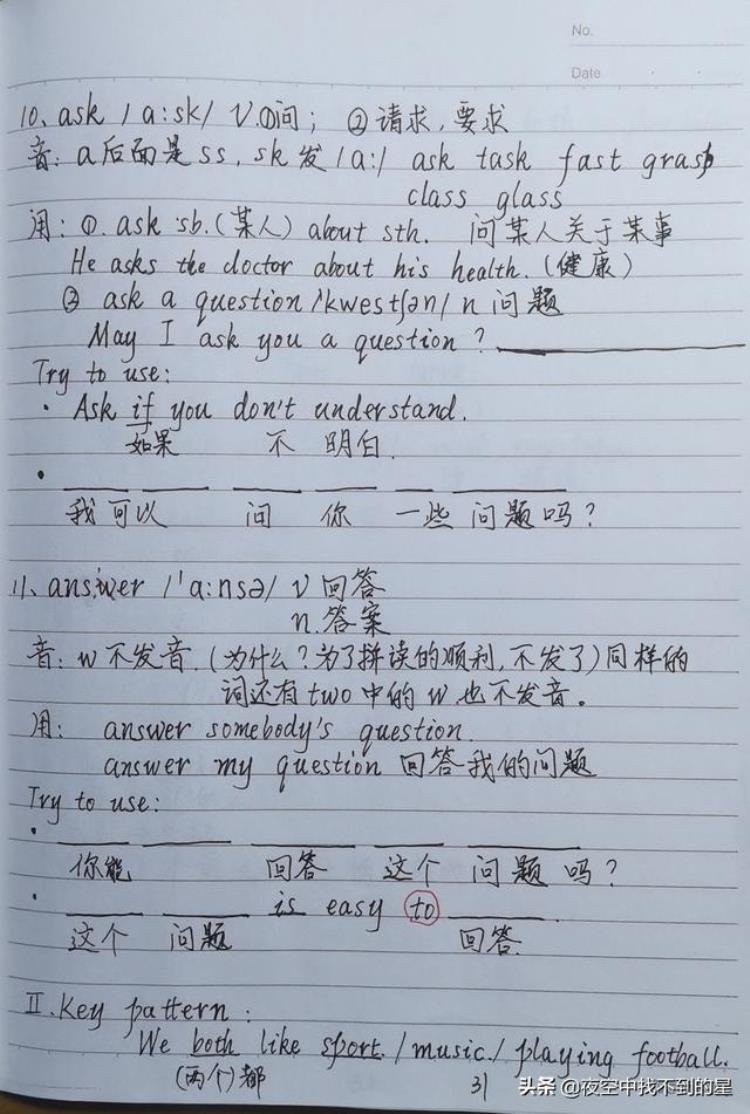 No.
Date
10、ask /a:sk/ v.①问; ②请求,要求
音: a后面是ss, sk 发/a:/ ask task fast grass
class glass
用: ①. ask sb.(某人) about sth. 问某人关于某事
He asks the doctor about his health.(健康)
② ask a question /'kwestʃən/ n 问题
May I ask you a question?
Try to use:
· Ask if you don't understand.
如果 不 明白.
· ____ ____ ____ ____ ____ ____
我 可以 问 你 一些 问题吗?
11、answer /'a:nsə/ v 回答
n.答案
音: w不发音.(为什么?为了拼读的顺利,不发了)同样的
词还有two中的w也不发音。
用: answer somebody's question.
answer my question 回答我的问题
Try to use:
· ____ ____ ____ ____ ____
你能 回答 这个 问题吗?
· ____ ____ is easy to ____.
这个 问题 回答.
II. Key pattern:
We both like sport./music./playing football.
(两个)都
31
头条 @夜空中找不到的星